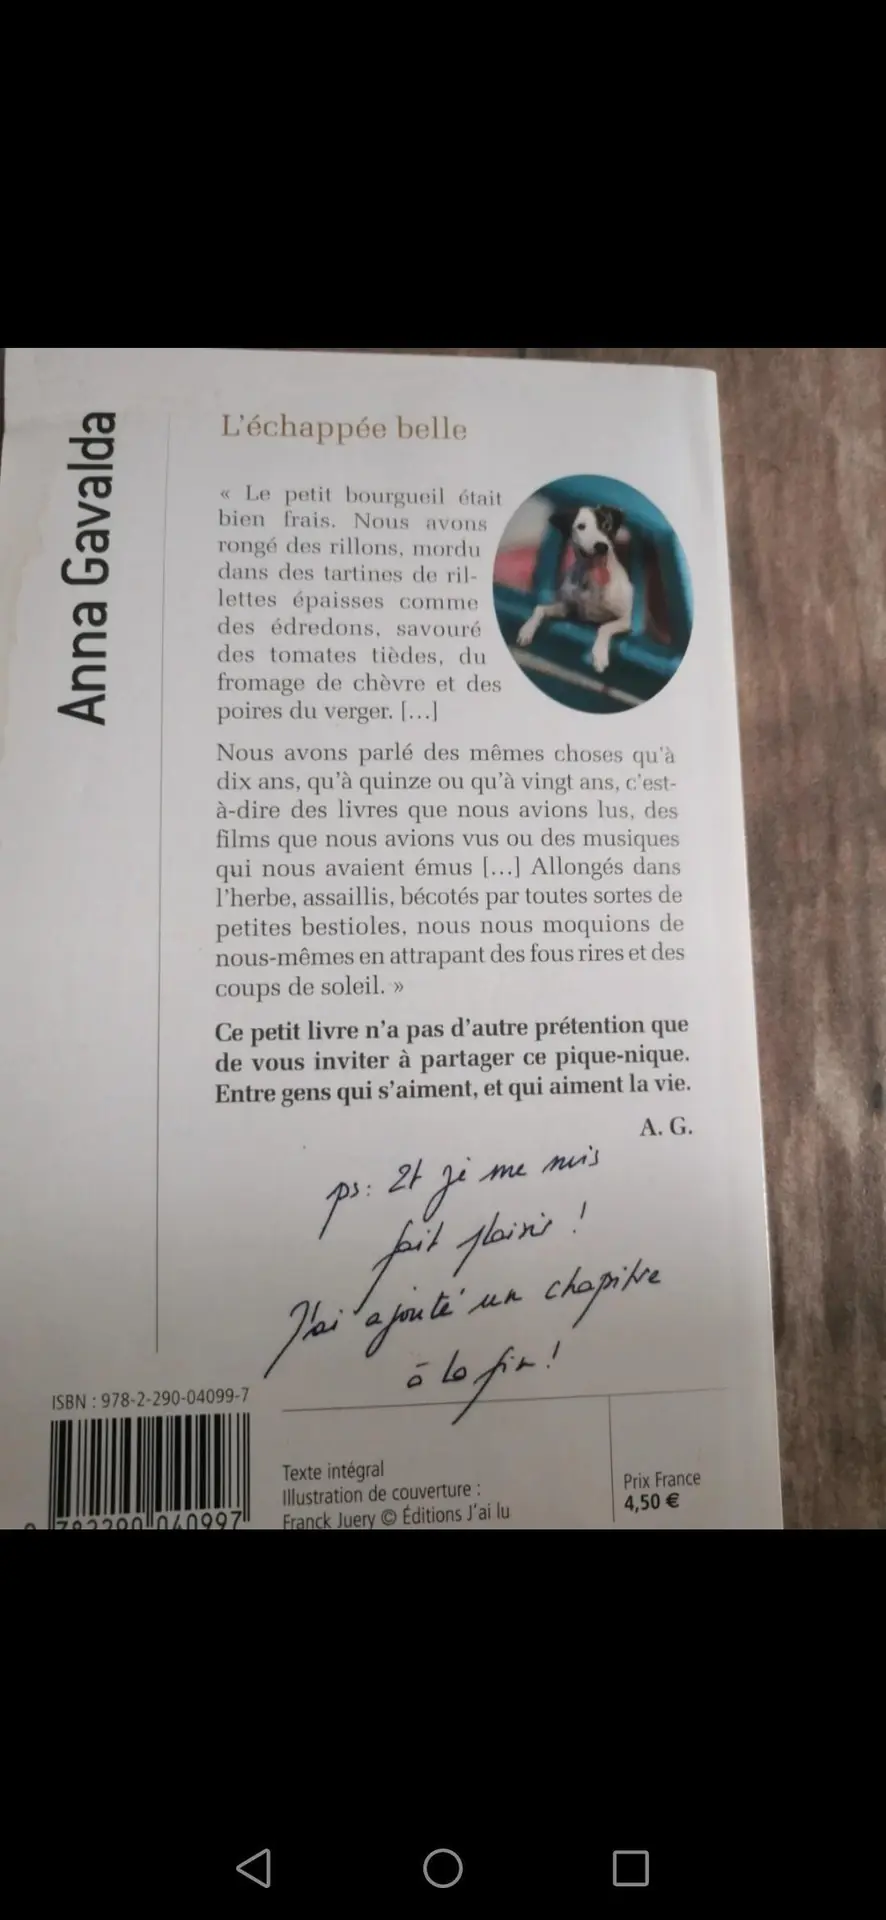 Anna Gavalda
L'échappée belle
« Le petit bourgueil était
bien frais. Nous avons
rongé des rillons, mordu
dans des tartines de ril-
lettes épaisses comme
des édredons, savouré
des tomates tièdes, du
fromage de chèvre et des
poires du verger. [...]
Nous avons parlé des mêmes choses qu'à
dix ans, qu'à quinze ou qu'à vingt ans, c'est-
à-dire des livres que nous avions lus, des
films que nous avions vus ou des musiques
qui nous avaient émus [...] Allongés dans
l'herbe, assaillis, bécotés par toutes sortes de
petites bestioles, nous nous moquions de
nous-mêmes en attrapant des fous rires et des
coups de soleil. »
Ce petit livre n'a pas d'autre prétention que
de vous inviter à partager ce pique-nique.
Entre gens qui s'aiment, et qui aiment la vie.
A. G.
ps: Et je me suis
fait plaisir !
J'ai ajouté un chapitre
à la fin !
ISBN : 978-2-290-04099-7
9 782290 040997
Texte intégral
Illustration de couverture :
Franck Juery © Éditions J'ai lu
Prix France
4,50 €